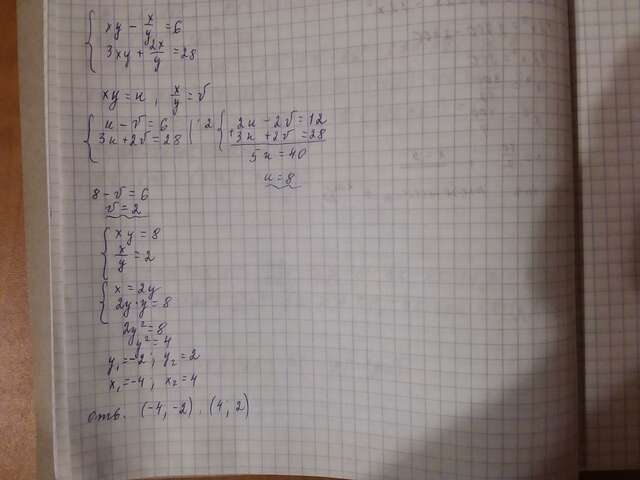 xy - x/y = 6
3xy + 2x/y = 28
xy = u, x/y = v
u - v = 6 | · 2 2u - 2v = 12
3u + 2v = 28 + 3u + 2v = 28
5u = 40
u = 8
8 - v = 6
v = 2
xy = 8
x/y = 2
x = 2y
2y · y = 8
2y² = 8
y² = 4
y₁ = -2; y₂ = 2
x₁ = -4, x₂ = 4
отв. (-4, -2), (4; 2)